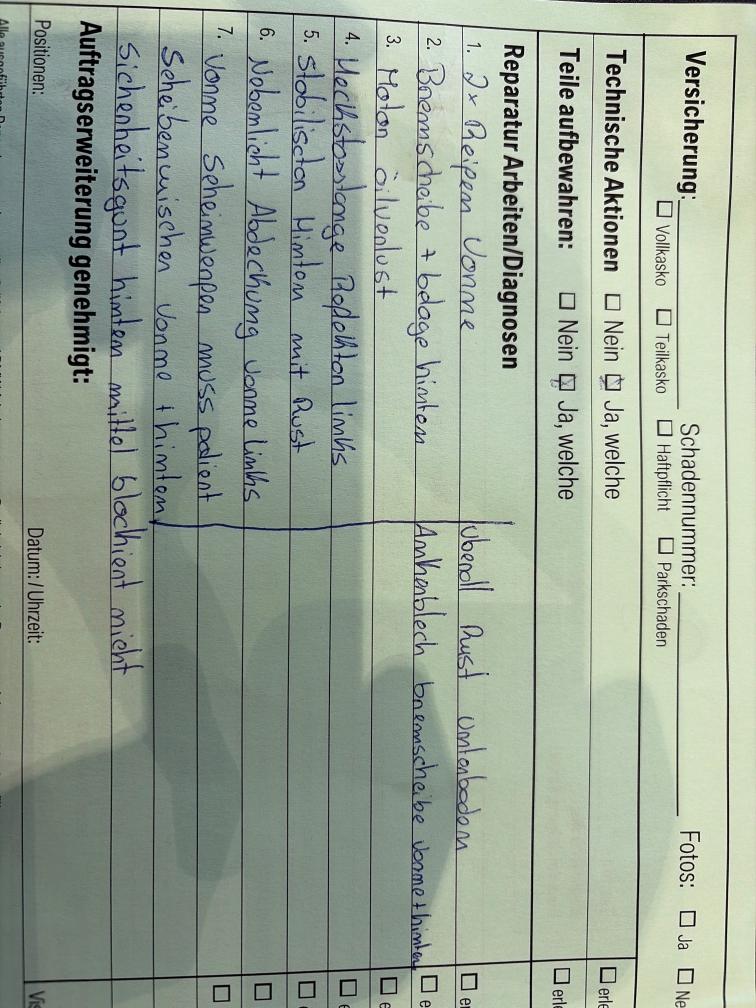 Versicherung: Schadennummer: Fotos: ☐ Ja ☐ Ne
☐ Vollkasko ☐ Teilkasko ☐ Haftpflicht ☐ Parkschaden
Technische Aktionen ☐ Nein ☒ Ja, welche ☐ erle
Teile aufbewahren: ☐ Nein ☒ Ja, welche ☐ erle
Reparatur Arbeiten/Diagnosen
1. 2x Reifen Vorne überall Rust Unterboden ☐ er
2. Bremscheibe + beläge hinten Ankerblech bremscheibe vorne + hinten ☐ e
3. Motor ölverlust ☐ e
4. Hechstoßstange Reflektor links ☐ e
5. Stabilisator Hinten mit Rust ☐
6. Nebenlicht Abdeckung vorne links ☐
7. Vorne Scheinwerfer muss poliert ☐
Scheibenwischer vorne + hinten
Sicherheitsgurt hinten mittel blockiert nicht
Auftragserweiterung genehmigt:
Positionen: Datum: / Uhrzeit: